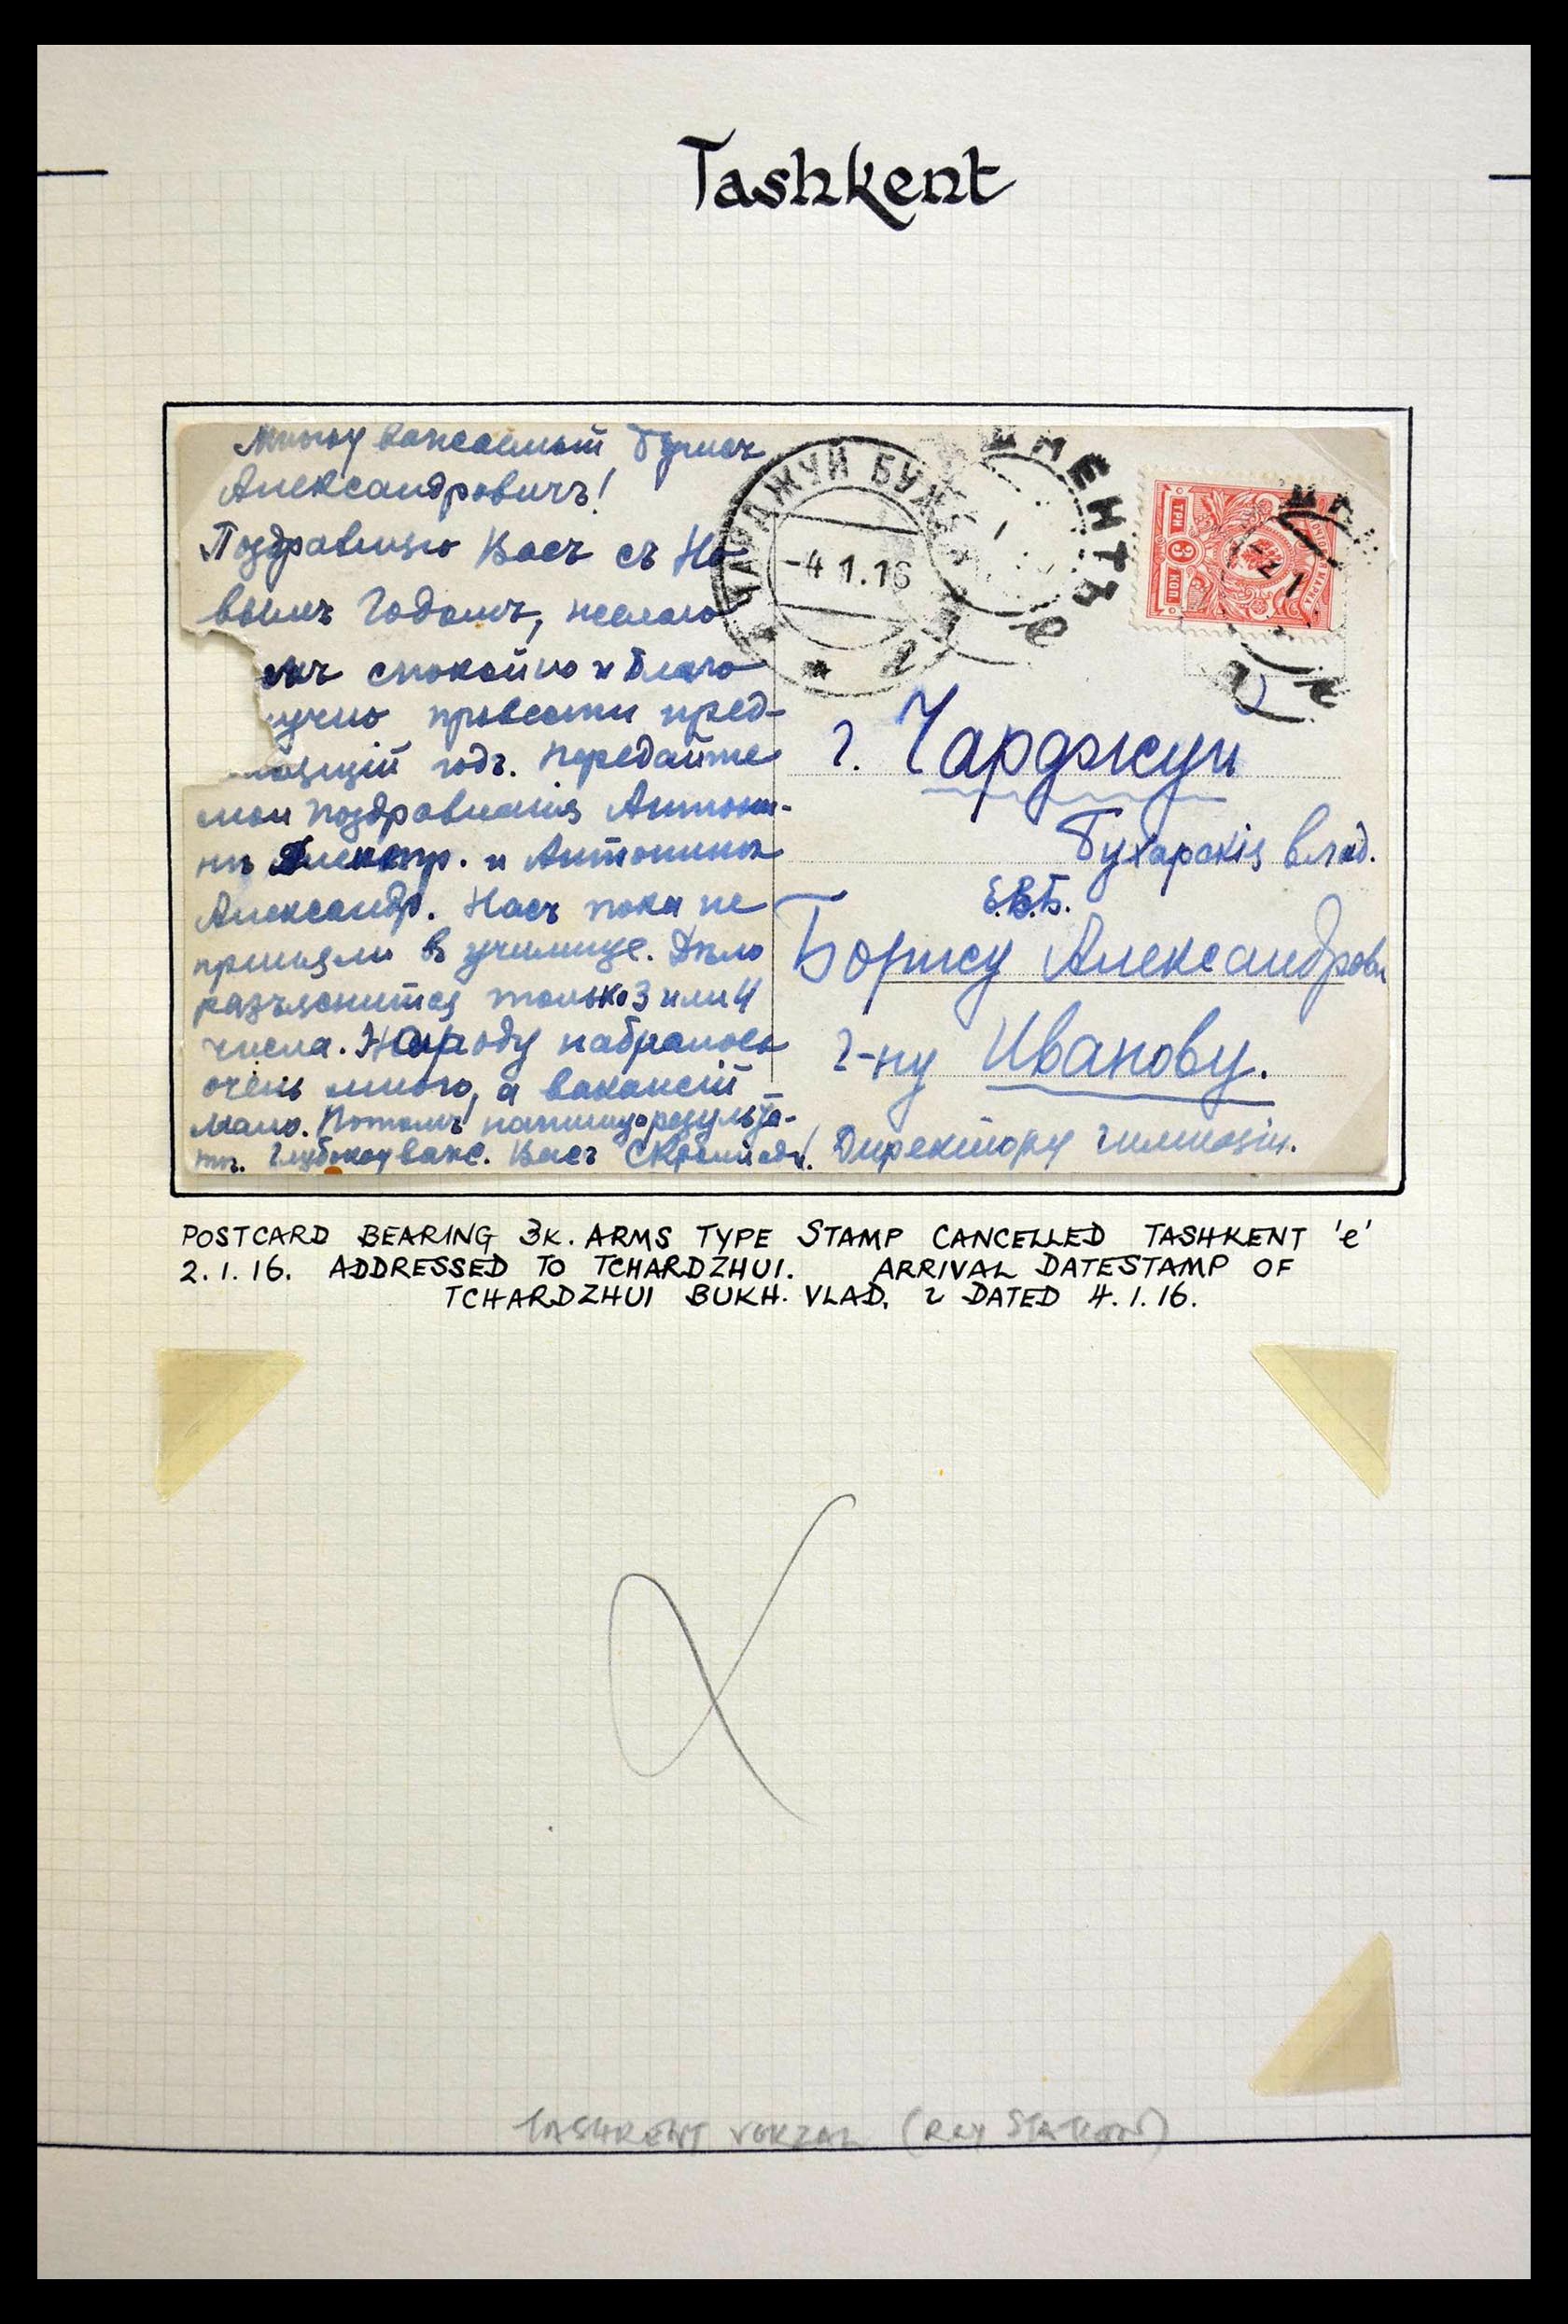 Tashkent
Многоуважаемый Борисъ
Александровичъ!
Поздравляю Васъ съ Но
вымъ Годомъ, желаю
спокойно и благо
учно провести пред-
щій годъ. Передайте
мои поздравленія Антони-
нѣ Александр. и Антонинѣ
Александр. Насъ пока не
приняли в училище. Дѣло
разъяснится только 3 или 4
числа. Народу набралось
очень много, а вакансій
мало. Потомъ напишу о результа-
тѣ. Глубокоуваж. Васъ
ЧАРДЖУЙ БУХ
-4 1.16
г
ШКЕНТЪ
е
ТРИ 3 КОП.
-2 1
г. Чарджуй
Бухарскія влад.
Е.В.Б.
Борису Александрови
г-ну Иванову.
Директору гимназіи.
POSTCARD BEARING 3K. ARMS TYPE STAMP CANCELLED TASHKENT 'e'
2.1.16. ADDRESSED TO TCHARDZHUI. ARRIVAL DATESTAMP OF
TCHARDZHUI BUKH. VLAD. г DATED 4.1.16.
TASHKENT VOKZAL (RLY STATION)